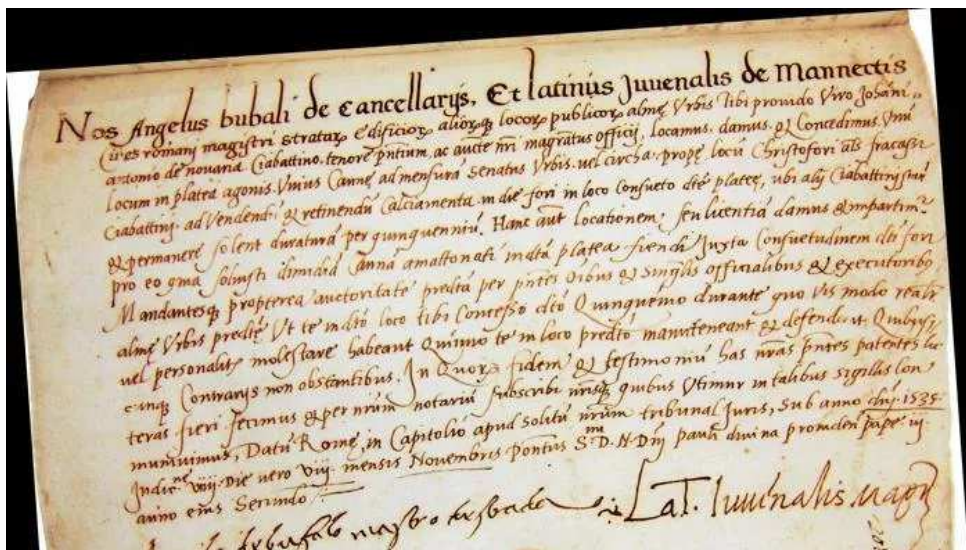 Nos Angelus bubali de Cancellarijs, Et latinus Juvenalis de Mannectis
Cives romanj magistri stratarꝝ edificiorꝝ aliorꝝqꝫ locorꝝ publicorꝝ almę Urbis tibi provido Viro Johāni
antonio de novaria Ciabattino, tenore pn̄tium, ac aucte nr̄i magr̄atus officij, locamus. damus. & Concedimus. Unū
locum in platea agonis. Unius Cannę ad mensurā Senatus Urbis. vel circha. propę locū Christofori al's fracassi
Ciabattinj. ad Vendendū & retinendū Calciamenta in die fori in loco Consueto dc̄tę plateę, ubi alij Ciabattinj stare
& permanere solent duraturā per quinquenniū. Hanc aut̄ locationem, seu licentiā damus & impartim̄
pro eo qma solvisti dimidiā Cannā amattonati in dc̄ta platea fiendi Juxta Consuetudinem dc̄ti fori
Mandantesqꝫ propterea auctoritate predc̄ta per pn̄tes Oībus & Singlīs officialibus & executoribꝫ
almę Urbis predc̄tę Ut te in dc̄to loco tibi Concesso dc̄to Quinquenio durante quo Vis modo realr̄
vel personalit̄ molestare habeant Quinīo te in loco predc̄to manuteneant & defendāt. Quibus
cunqꝫ Contrarijs non obstantibus. In Quorꝝ fidem & testimoniū has nr̄as pn̄tes patentes lit
teras fieri fecimus & per nrūm notariū subscribi nrīsqꝫ quibus Utimur in talibus sigillis com
munivimus, Datū Romę, in Capitolio apud solitū nrūm tribunal Juris, Sub anno dn̄j 1535
Indic.ne viiij. Die vero viij mensis Novembris Pontūs S.mi D. N. Dn̄j pauli divina providen̄ pape iij
anno eius Secundo
bufalo mastro de strada Lat. Iuvenalis. mag